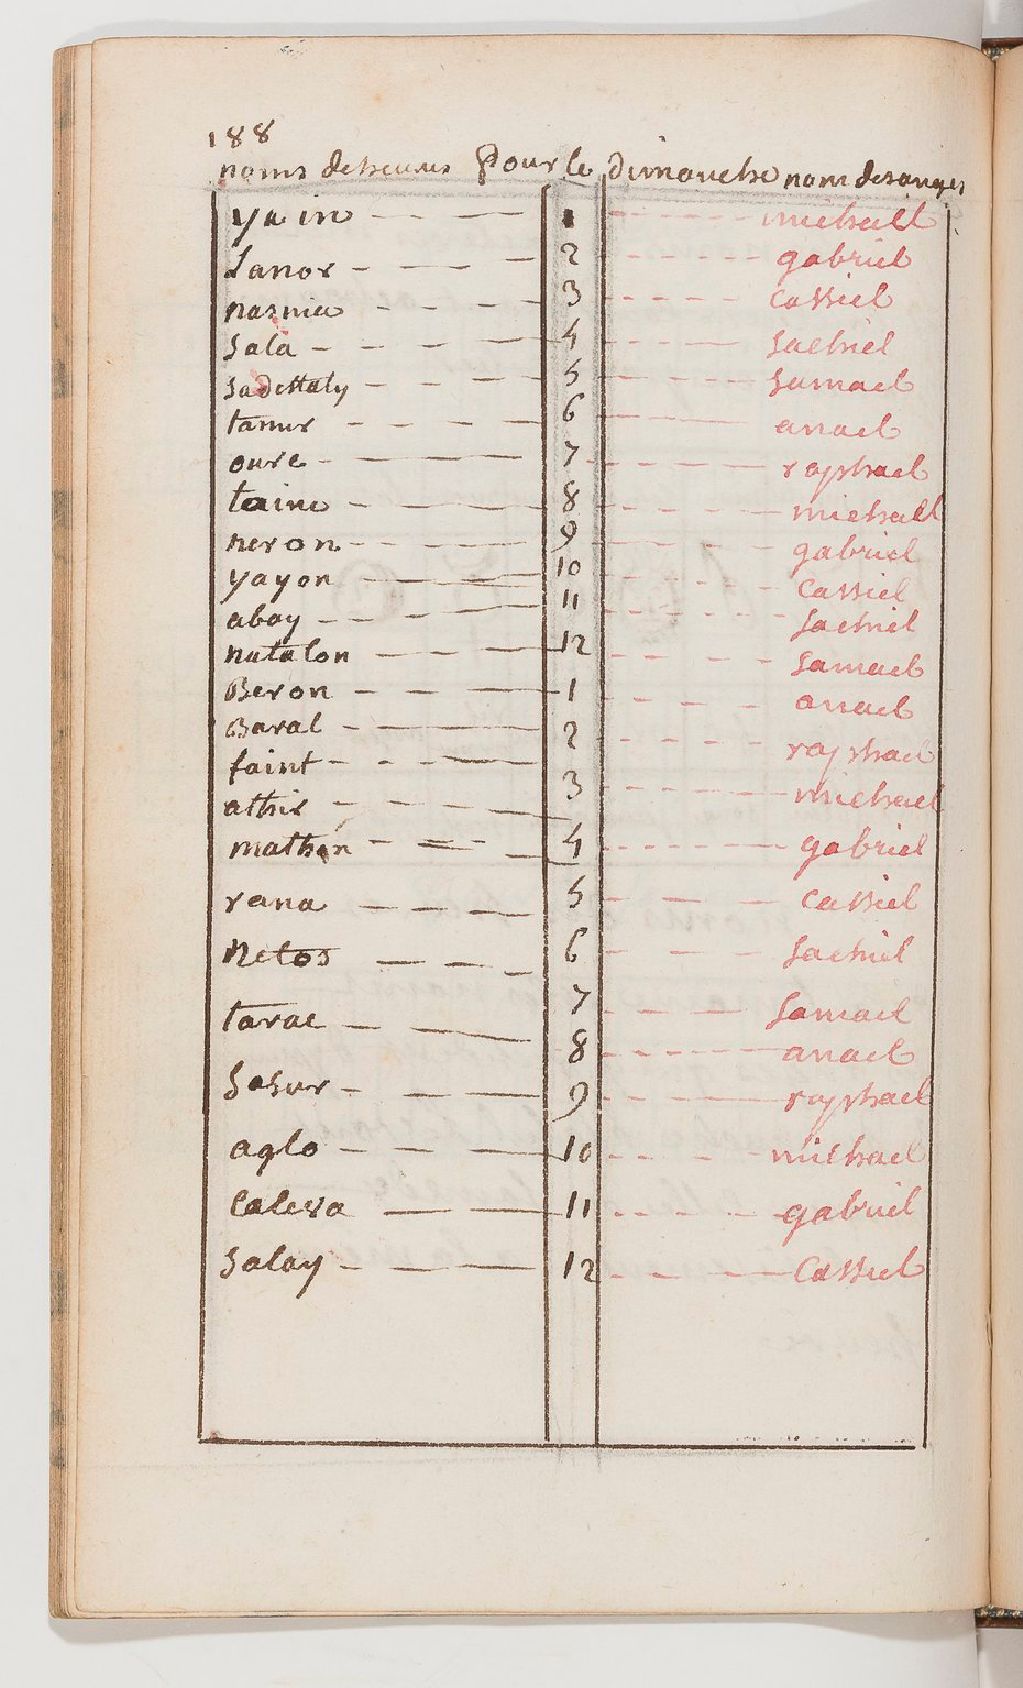 188
noms deheures Pour le dimanche nom desanges
yain 1 michaël
Janor 2 gabriel
nasnia 3 cassiel
Sala 4 sachiel
Sadedaly 5 samael
tamur 6 anael
oure 7 raphael
taine 8 michael
neron 9 gabriel
yayon 10 cassiel
abay 11 sachiel
natalon 12 samael
Beron 1 anael
Baral 2 raphael
faint 3 michael
athir
mathon 4 gabriel
rana 5 cassiel
Netos 6 sachiel
tarac 7 samael
8 anael
Sasur 9 raphael
aglo 10 michael
Calerva 11 gabriel
Salay 12 Cassiel